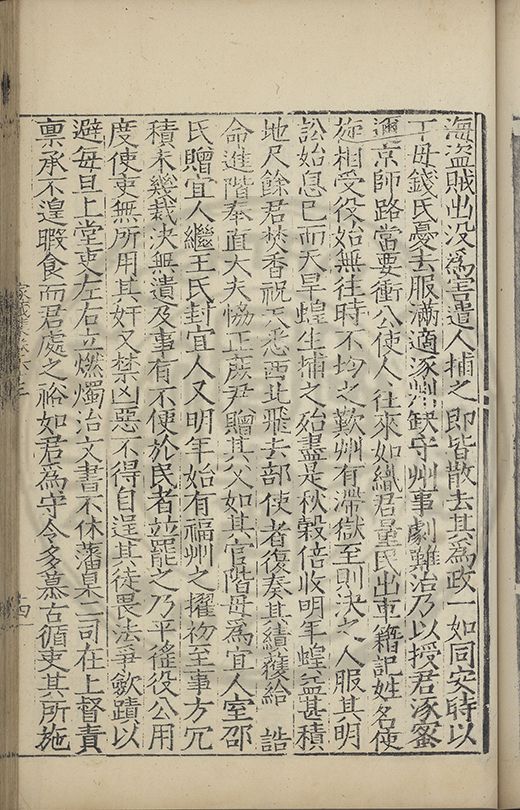 海盗賊出没為害遣人捕之即皆散去其為政一如同安時以
丁母錢氏憂去服滿適涿州缺守州事劇難治乃以授君涿蜜
邇京師路當要衝公使人往來如織君量民出車籍記姓名使
迤相受役始無往時不均之歎州有滯獄至則決之人服其明
訟始息已而天旱蝗生捕之殆盡是秋穀倍收明年蝗益甚積
地尺餘君焚香祝天悉西北飛去部使者復奏其績獲給 誥
命進階奉直大夫協正庶尹贈其父如其官階母為宜人室邵
氏贈宜人繼王氏封宜人又明年始有福州之擢初至事方冗
積未幾裁決無遺及事有不便於民者並罷之乃平徭役公用
度使吏無所用其奸又禁凶惡不得自逞其徒畏法爭斂蹟以
避每旦上堂吏左右立燃燭治文書不休藩臬二司在上督責
稟承不遑暇食而君處之裕如君為守令多慕古循吏其所施